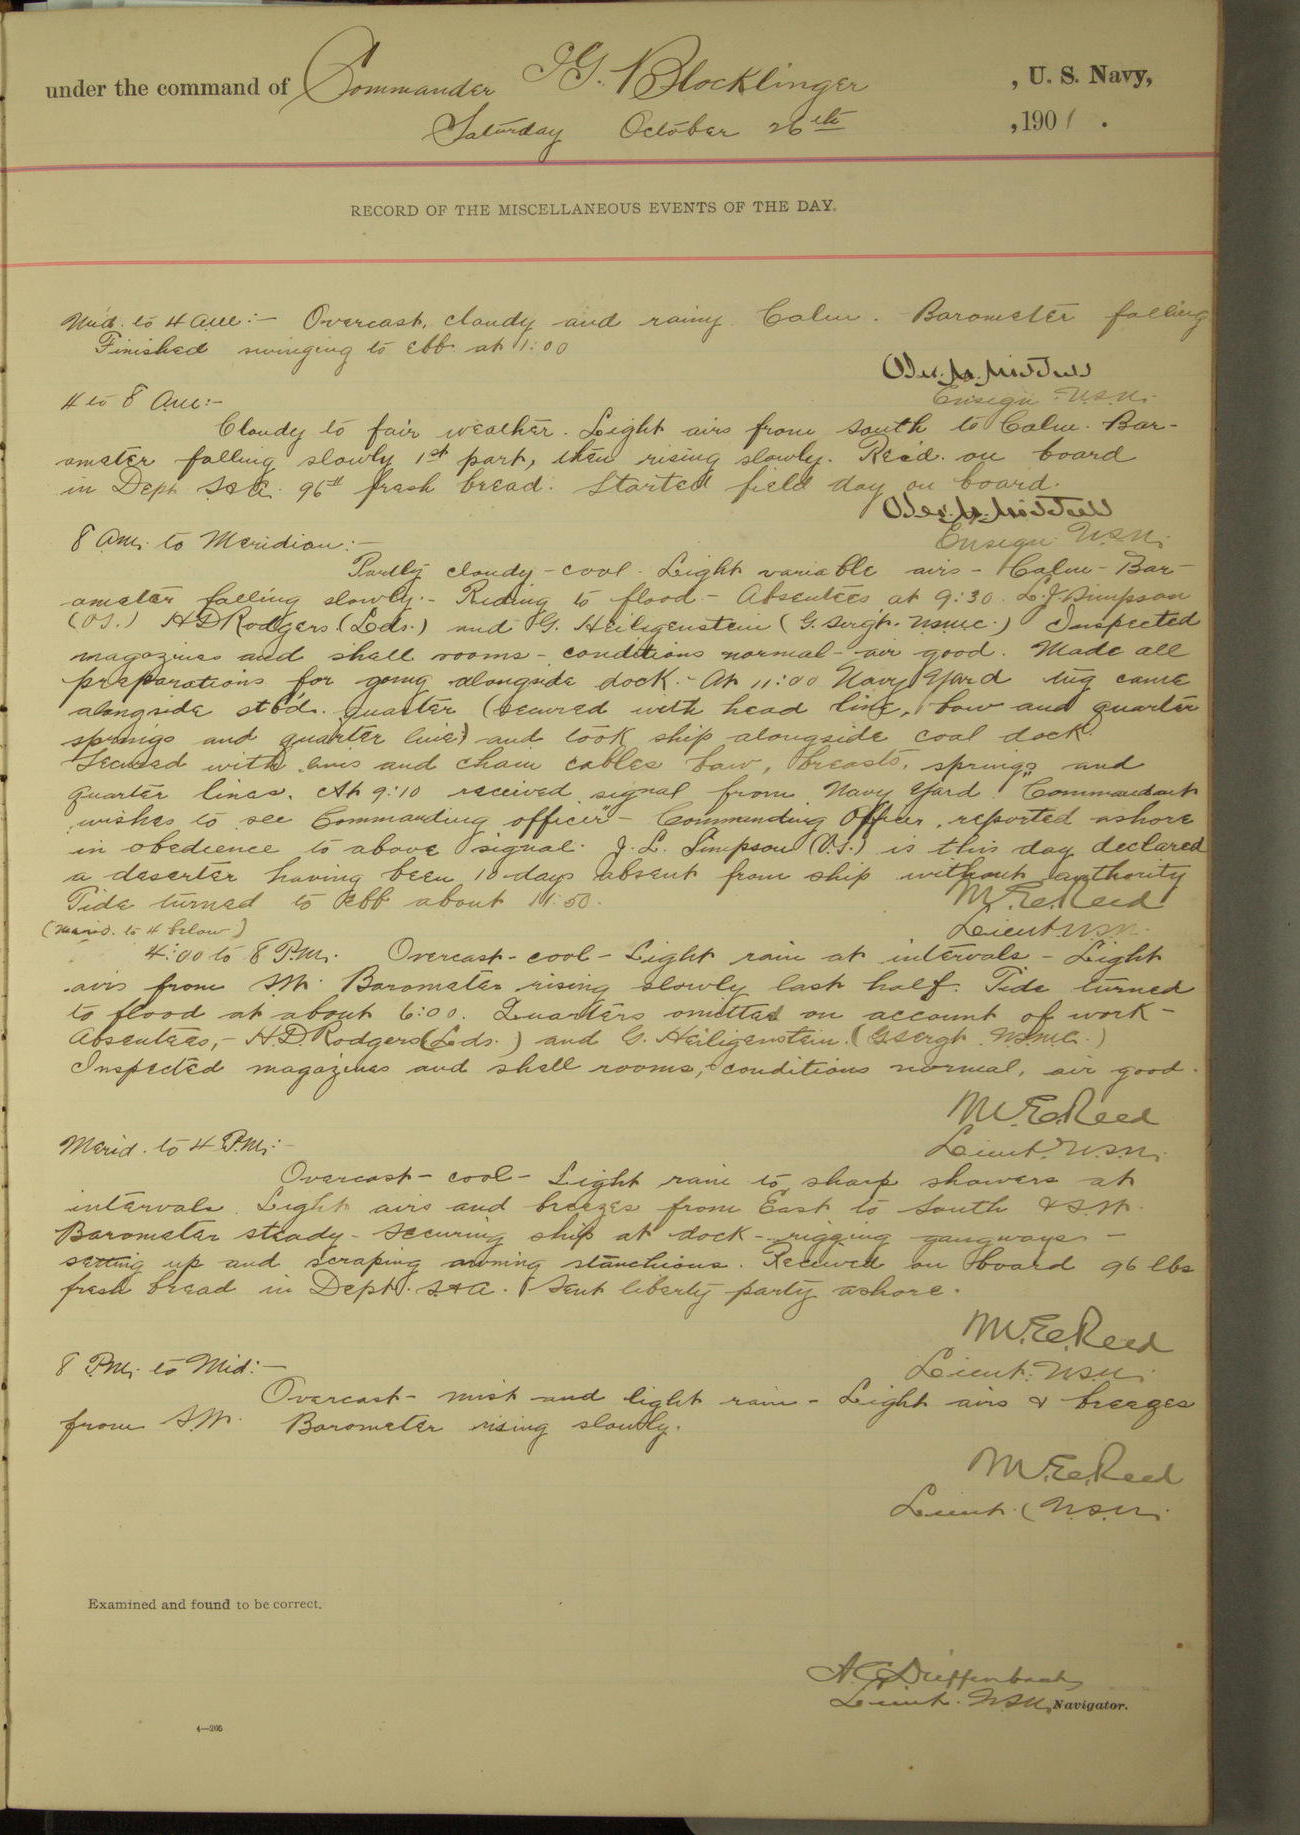 under the command of Commander G. Blocklinger, U. S. Navy,
Saturday October 26th, 1901.
RECORD OF THE MISCELLANEOUS EVENTS OF THE DAY.
Mid. to 4 a.m:- Overcast, cloudy and rainy. Calm. Barometer falling
Finished swinging to ebb at 1:00
Ensign U.S.N.
4 to 8 a.m:-
Cloudy to fair weather. Light airs from South to Calm. Bar-
ometer falling slowly 1st part, then rising slowly. Rec'd. on board
in Dept S&A. 96# fresh bread. Started field day on board.
Ensign U.S.N.
8 a.m. to Meridian:-
Partly cloudy - cool. Light variable airs - Calm - Bar-
ometer falling slowly. - Riding to flood - Absentees at 9:30. L.J. Simpson
(O.S.) H D Rodgers (Lds.) and G. Heiligenstein (G. Sergt. U.S.M.C.) Inspected
magazines and shell rooms - conditions normal - air good. Made all
preparations for going alongside dock. - At 11:00 Navy Yard tug came
alongside stb'd. quarter (secured with head line, bow and quarter
springs and quarter line) and took ship alongside coal dock.
Secured with lines and chain cables bow, breasts, springs and
quarter lines. At 9:10 received signal from Navy Yard "Commandant
wishes to see Commanding officer" - Commanding Officer reported ashore
in obedience to above signal. J. L. Simpson (O.S.) is this day declared
a deserter having been 10 days absent from ship without authority
Tide turned to ebb about 11:50.
M. E. Reed
Lieut. U.S.N.
(Merid. to 4 below)
4:00 to 8 P.M. Overcast - cool - Light rain at intervals - Light
airs from S.W. Barometer rising slowly last half. Tide turned
to flood at about 6:00. Quarters omitted on account of work -
Absentees, - H.D. Rodgers (Lds.) and G. Heiligenstein. (G Sergt. U.S.M.C.)
Inspected magazines and shell rooms, - conditions normal, air good.
M. E. Reed
Lieut. U.S.N.
Merid. to 4 P.M:-
Overcast - cool - Light rain to sharp showers at
intervals. Light airs and breezes from East to South & S.W.
Barometer steady - Securing ship at dock - rigging gangways -
setting up and scraping awning stanchions. Received on board 96 lbs
fresh bread in Dept. S.&A. Sent liberty party ashore.
M. E. Reed
Lieut. U.S.N.
8 P.M. to Mid:-
Overcast - mist and light rain - Light airs & breezes
from S.W. Barometer rising slowly.
M. E. Reed
Lieut. U.S.N.
Examined and found to be correct.
A. C. Dieffenbach
Lieut. U.S.N., Navigator.
4—205